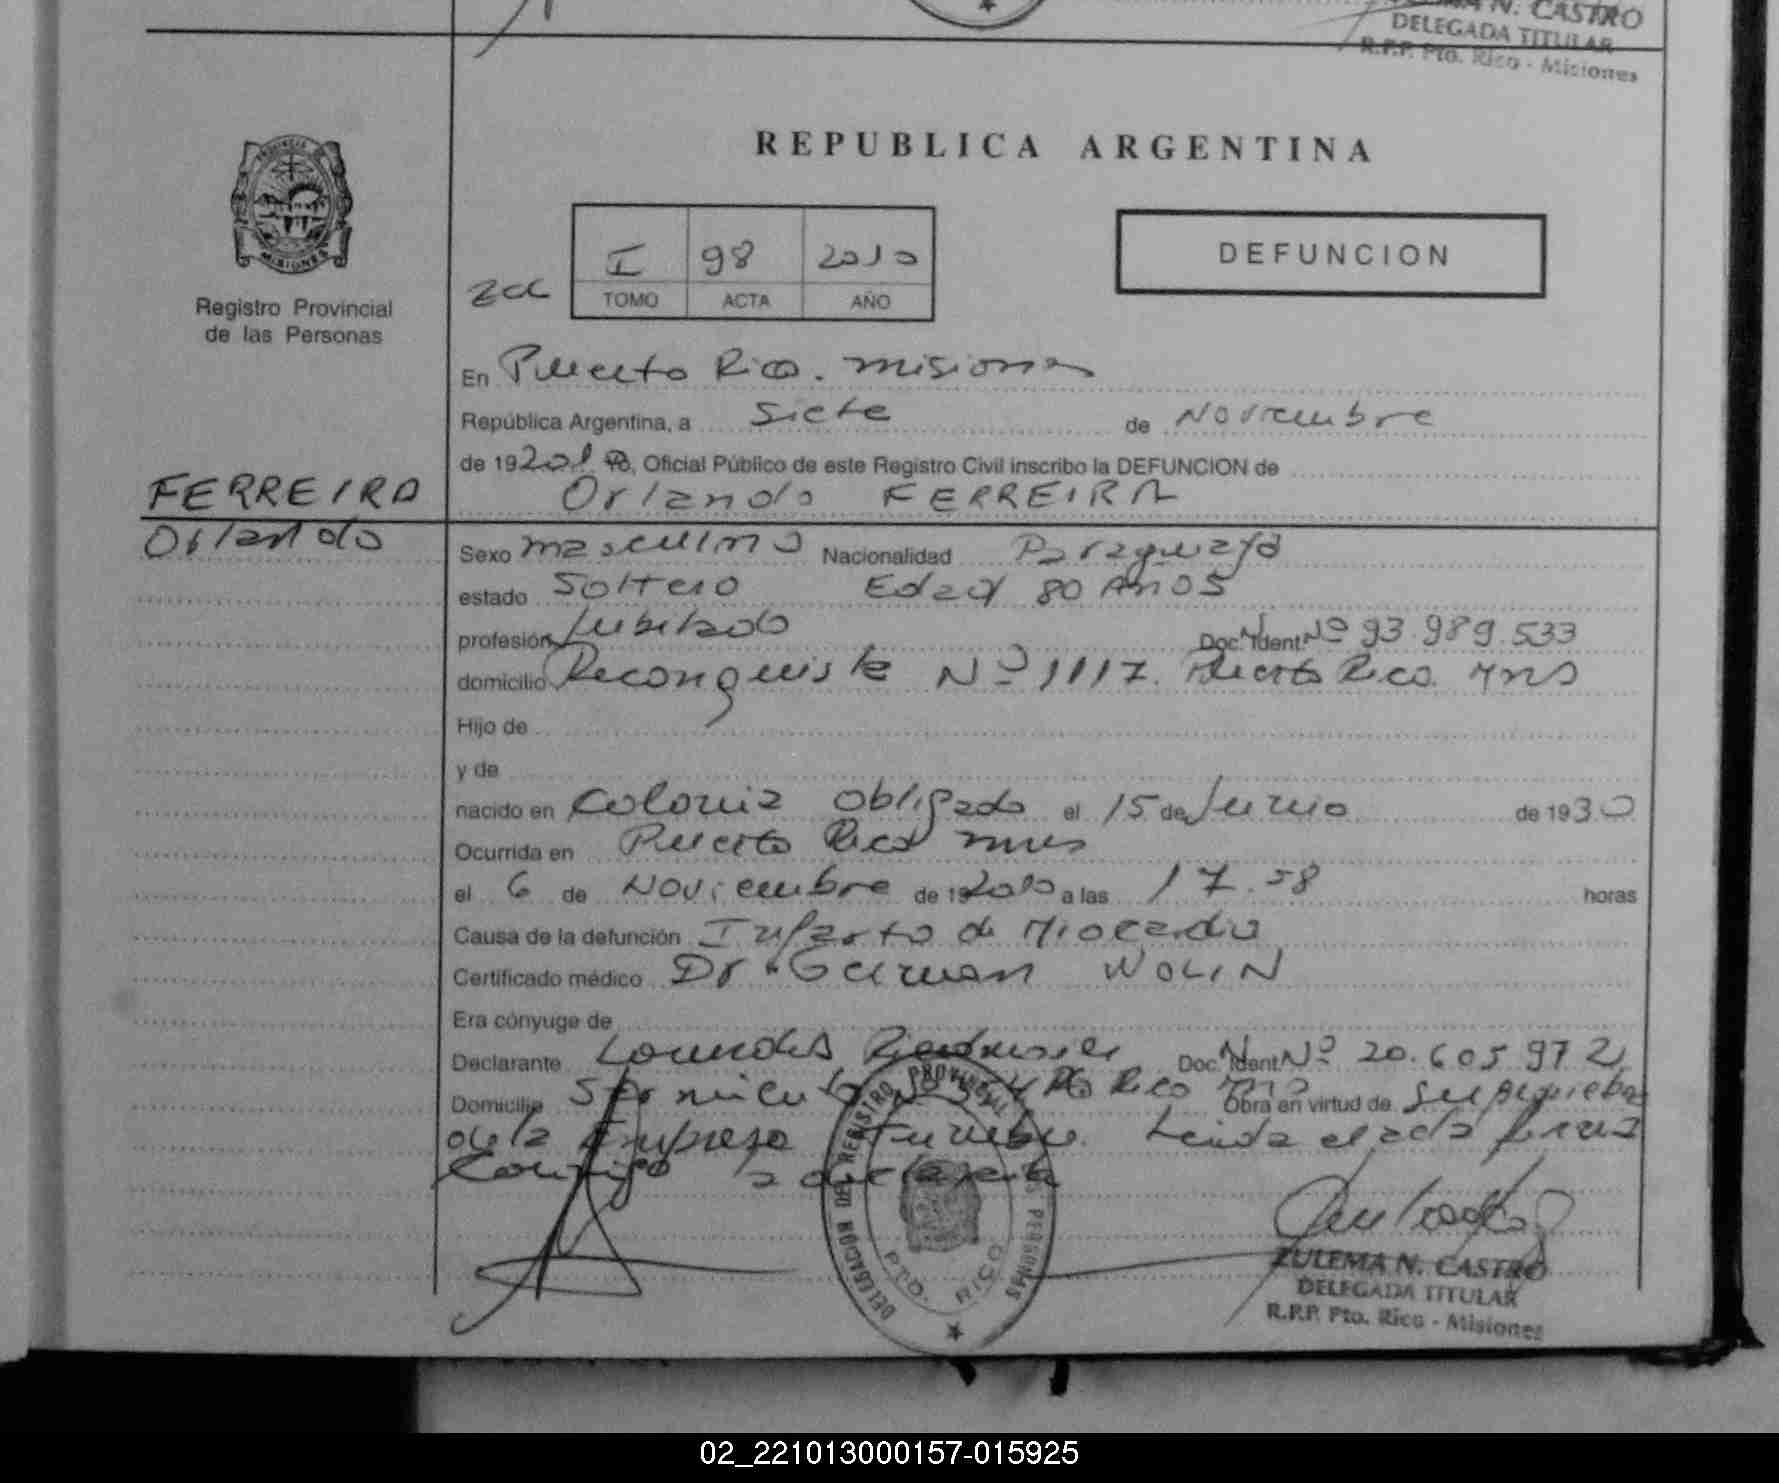 N. CASTRO
DELEGADA TITULAR
R.P.P. Pto. Rico - Misiones
REPUBLICA ARGENTINA
PROVINCIA DE
MISIONES
Registro Provincial
de las Personas
I 98 2010
TOMO ACTA AÑO
DEFUNCION
En Puerto Rico. Misiones
República Argentina, a siete de Noviembre
de 19 2010, Oficial Público de este Registro Civil inscribo la DEFUNCION de
Orlando FERREIRA
FERREIRA
Orlando
Sexo masculino Nacionalidad Paraguaya
estado Soltero Edad 80 Años
profesión Jubilado Doc. Ident. Nº 93.989.533
domicilio Reconquista Nº 1117. Puerto Rico. Mns
Hijo de
y de
nacido en Colonia Obligado el 15 de Junio de 1930
Ocurrida en Puerto Rico mnes
el 6 de Noviembre de 19 2010 a las 17.58 horas
Causa de la defunción Infarto de Miocardio
Certificado médico Dr. German WOLIN
Era cónyuge de
Declarante Lourdes Doc. Ident. Nº 20.605.972
Domicilio Sarmiento Nº Pto Rico Mns Obra en virtud de
de la Empresa Funebre. Leida el acta firma
Conmigo la declarante
DELEGACION DEL REGISTRO PROVINCIAL
DE LAS PERSONAS
PTO. RICO
ZULEMA N. CASTRO
DELEGADA TITULAR
R.P.P. Pto. Rico - Misiones
02_221013000157-015925